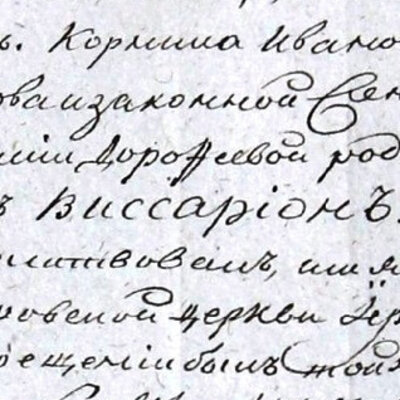 ъ. Корнила Ивано
ова и законной Сен
ніи Дороѳѣевой род
ъ Виссаріонъ.
литвовалъ, имя
новской церкви Іер
рещеніи былъ той